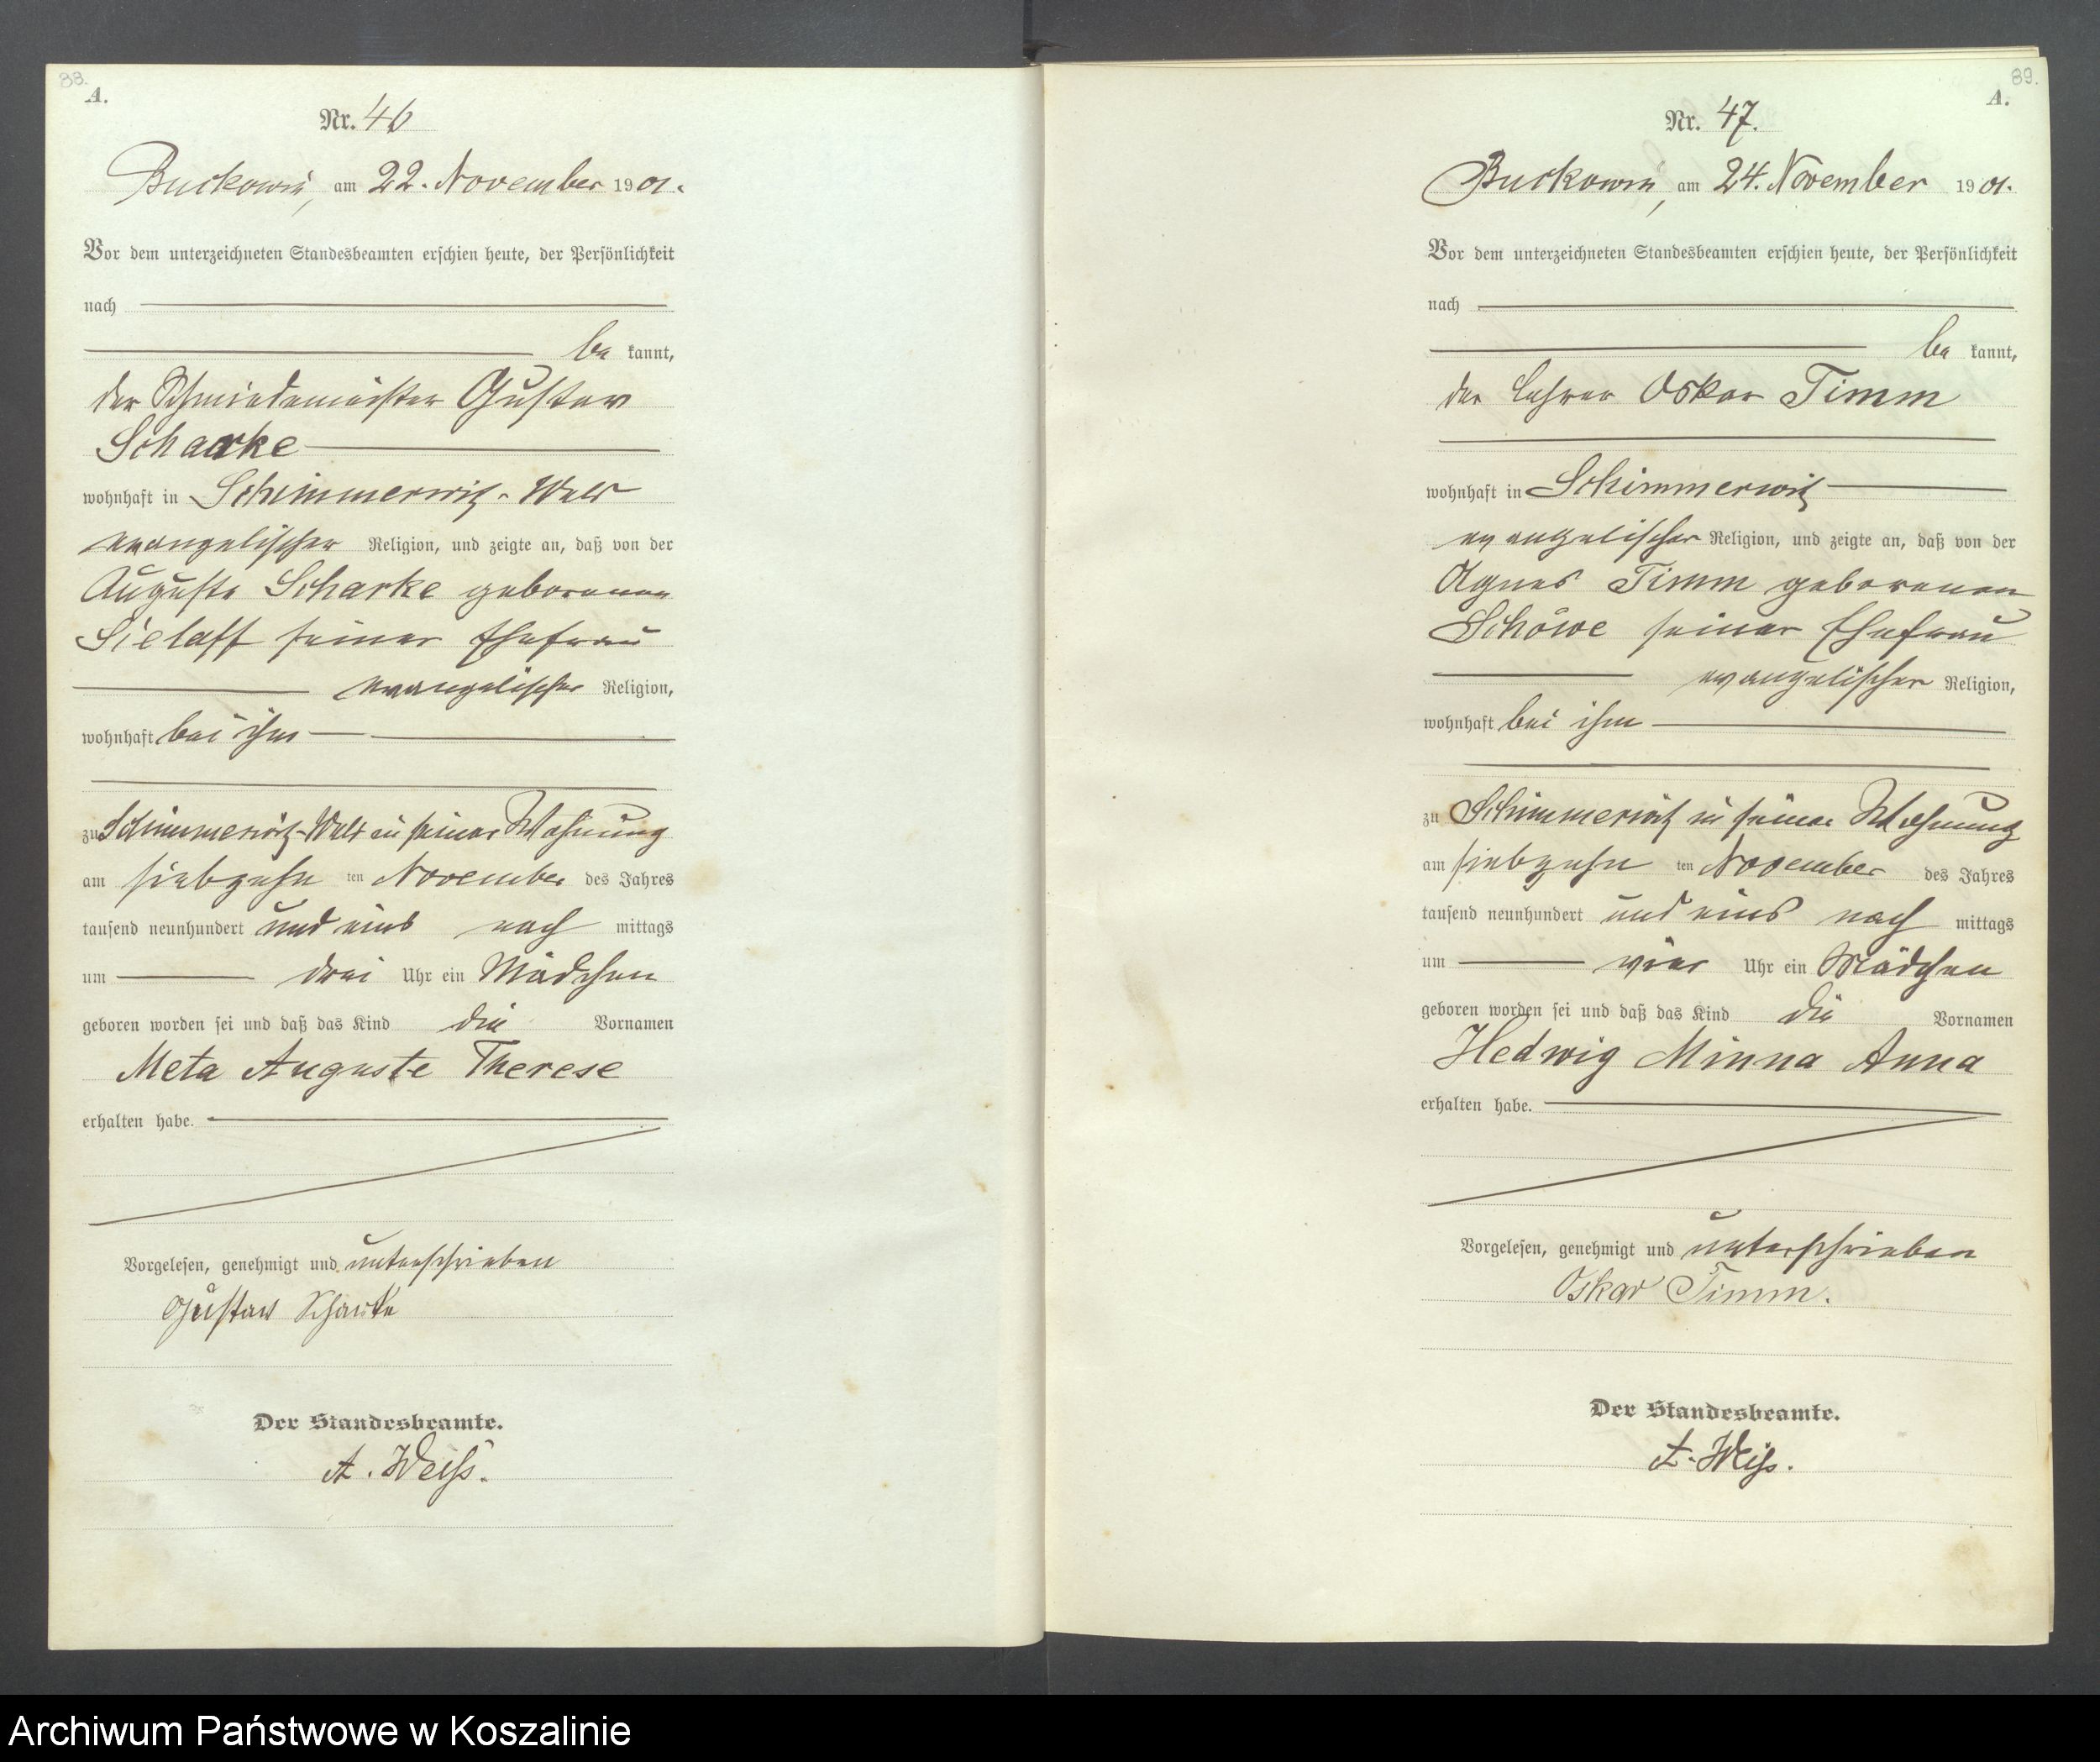 88.
A.
Nr. 46
Buckowin, am 22. November 1901.
Vor dem unterzeichneten Standesbeamten erschien heute, der Persönlichkeit
nach
be kannt,
der Schmiedemeister Gustav
Scharke
wohnhaft in Schimmerwitz-Wald
evangelischer Religion, und zeigte an, daß von der
Auguste Scharke geborenen
Sielaff seiner Ehefrau
evangelischer Religion,
wohnhaft bei ihm
zu Schimmerwitz-Wald in seiner Wohnung
am siebzehn ten November des Jahres
tausend neunhundert und eins nach mittags
um drei Uhr ein Mädchen
geboren worden sei und daß das Kind die Vornamen
Meta Auguste Therese
erhalten habe.
Vorgelesen, genehmigt und unterschrieben
Gustav Scharke
Der Standesbeamte.
A. Weiß.
89.
A.
Nr. 47.
Buckowin, am 24. November 1901.
Vor dem unterzeichneten Standesbeamten erschien heute, der Persönlichkeit
nach
be kannt,
der Lehrer Oskar Timm
wohnhaft in Schimmerwitz
evangelischer Religion, und zeigte an, daß von der
Agnes Timm geborenen
Schöwe seiner Ehefrau
evangelischer Religion,
wohnhaft bei ihm
zu Schimmerwitz in seiner Wohnung
am siebzehn ten November des Jahres
tausend neunhundert und eins nach mittags
um vier Uhr ein Mädchen
geboren worden sei und daß das Kind die Vornamen
Hedwig Minna Anna
erhalten habe.
Vorgelesen, genehmigt und unterschrieben
Oskar Timm.
Der Standesbeamte.
A. Weiß.
Archiwum Państwowe w Koszalinie